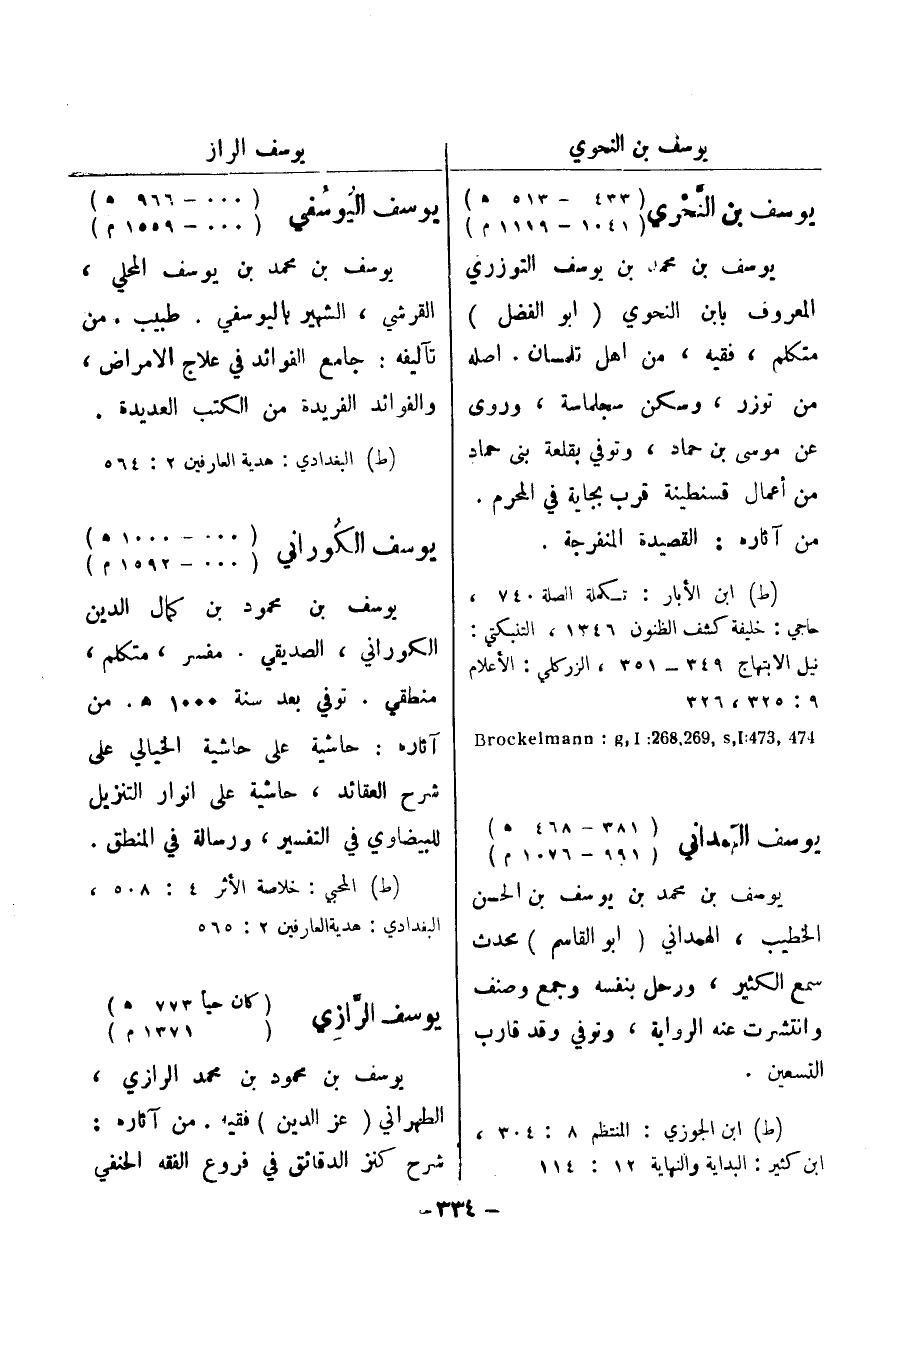 يوسف بن النحوي
يوسف بن النَّحْوي ( ٤٣٣ – ٥١٣ ه )
( ١٠٤١ – ١١١٩ م )
يوسف بن محمد بن يوسف التوزري
المعروف بابن النحوي ( ابو الفضل )
متكلم ، فقيه ، من اهل تلمسان . اصله
من توزر ، وسكن سجلماسة ، وروى
عن موسى بن حماد ، وتوفي بقلعة بني حماد
من أعمال قسنطينة قرب بجاية في المحرم .
من آثاره : القصيدة المنفرجة .
(ط) ابن الأبار : تكملة الصلة ٧٤٠ ،
حاجي : خليفة كشف الظنون ١٣٤٦ ، التنبكتي :
نيل الابتهاج ٣٤٩ – ٣٥١ ، الزركلي : الأعلام
٩ : ٣٢٥ ، ٣٢٦
Brockelmann : g, I :268,269, s,I:473, 474
يوسف الهمداني ( ٣٨١ – ٤٦٨ ه )
( ٩٩١ – ١٠٧٦ م )
يوسف بن محمد بن يوسف بن الحسن
الخطيب ، الهمداني ( ابو القاسم ) محدث
سمع الكثير ، ورحل بنفسه وجمع وصنف
وانتشرت عنه الرواية ، وتوفي وقد قارب
التسعين .
(ط) ابن الجوزي : المنتظم ٨ : ٣٠٤ ،
ابن كثير : البداية والنهاية ١٢ : ١١٤
يوسف الراز
يوسف اليُوسُفي ( ٠٠٠ – ٩٦٦ ه )
( ٠٠٠ – ١٥٥٩ م )
يوسف بن محمد بن يوسف المحلي ،
القرشي ، الشهير باليوسفي . طبيب . من
تآليفه : جامع الفوائد في علاج الامراض ،
والفوائد الفريدة من الكتب العديدة .
(ط) البغدادي : هدية العارفين ٢ : ٥٦٤
يوسف الكُوراني ( ٠٠٠ – ١٠٠٠ ه )
( ٠٠٠ – ١٥٩٢ م )
يوسف بن محمود بن كمال الدين
الكوراني ، الصديقي . مفسر ، متكلم ،
منطقي . توفي بعد سنة ١٠٠٠ ه . من
آثاره : حاشية على حاشية الخيالي على
شرح العقائد ، حاشية على انوار التنزيل
للبيضاوي في التفسير ، ورسالة في المنطق .
(ط) المحبي : خلاصة الأثر ٤ : ٥٠٨ ،
البغدادي : هدية العارفين ٢ : ٥٦٥
يوسف الرَّازِي ( كان حياً ٧٧٣ ه )
( ١٣٧١ م )
يوسف بن محمود بن محمد الرازي ،
الطهراني ( عز الدين ) فقيه . من آثاره :
شرح كنز الدقائق في فروع الفقه الحنفي
– ٣٣٤ –